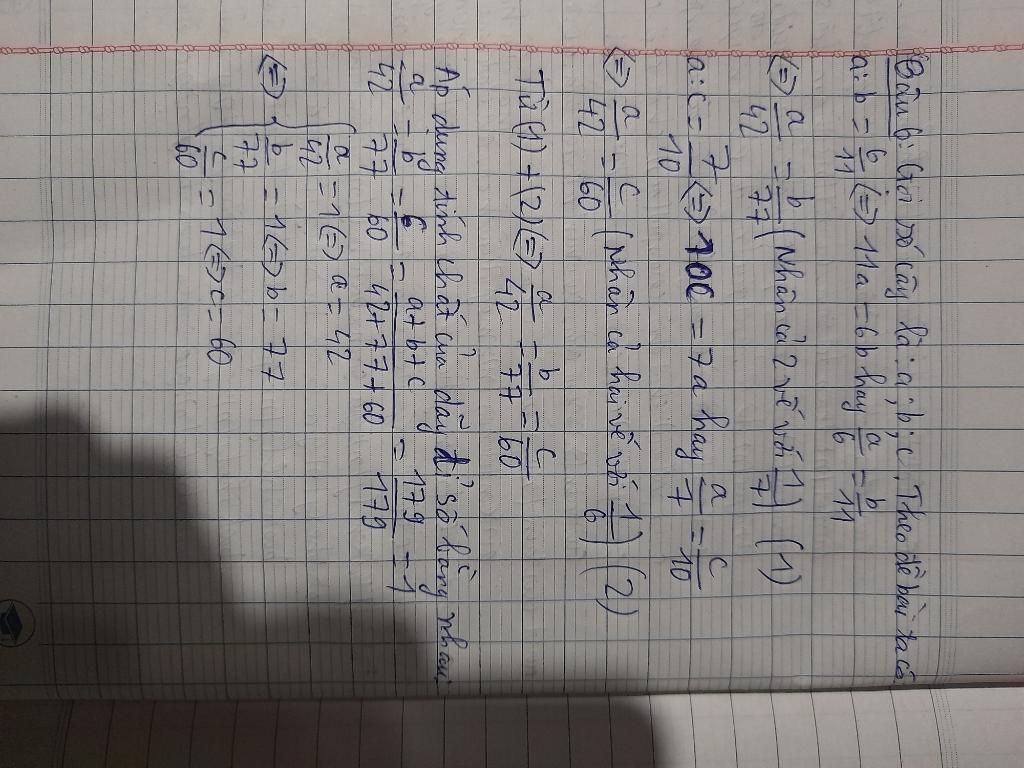 Bài 6: Gọi số cây là: a; b; c, Theo đề bài ta có
a:b = 6/11 (=) 11a = 6b hay a/6 = b/11
(=) a/42 = b/77 (Nhân cả 2 vế với 1/7) (1)
a:c = 7/10 (=) 10c = 7a hay a/7 = c/10
(=) a/42 = c/60 (Nhân cả hai vế với 1/6) (2)
Từ (1) + (2) (=) a/42 = b/77 = c/60
Áp dụng tính chất của dãy tỉ số bằng nhau:
a/42 = b/77 = c/60 = a+b+c/42+77+60 = 179/179 = 1
(=) { a/42 = 1 (=) a = 42
b/77 = 1 (=) b = 77
c/60 = 1 (=) c = 60